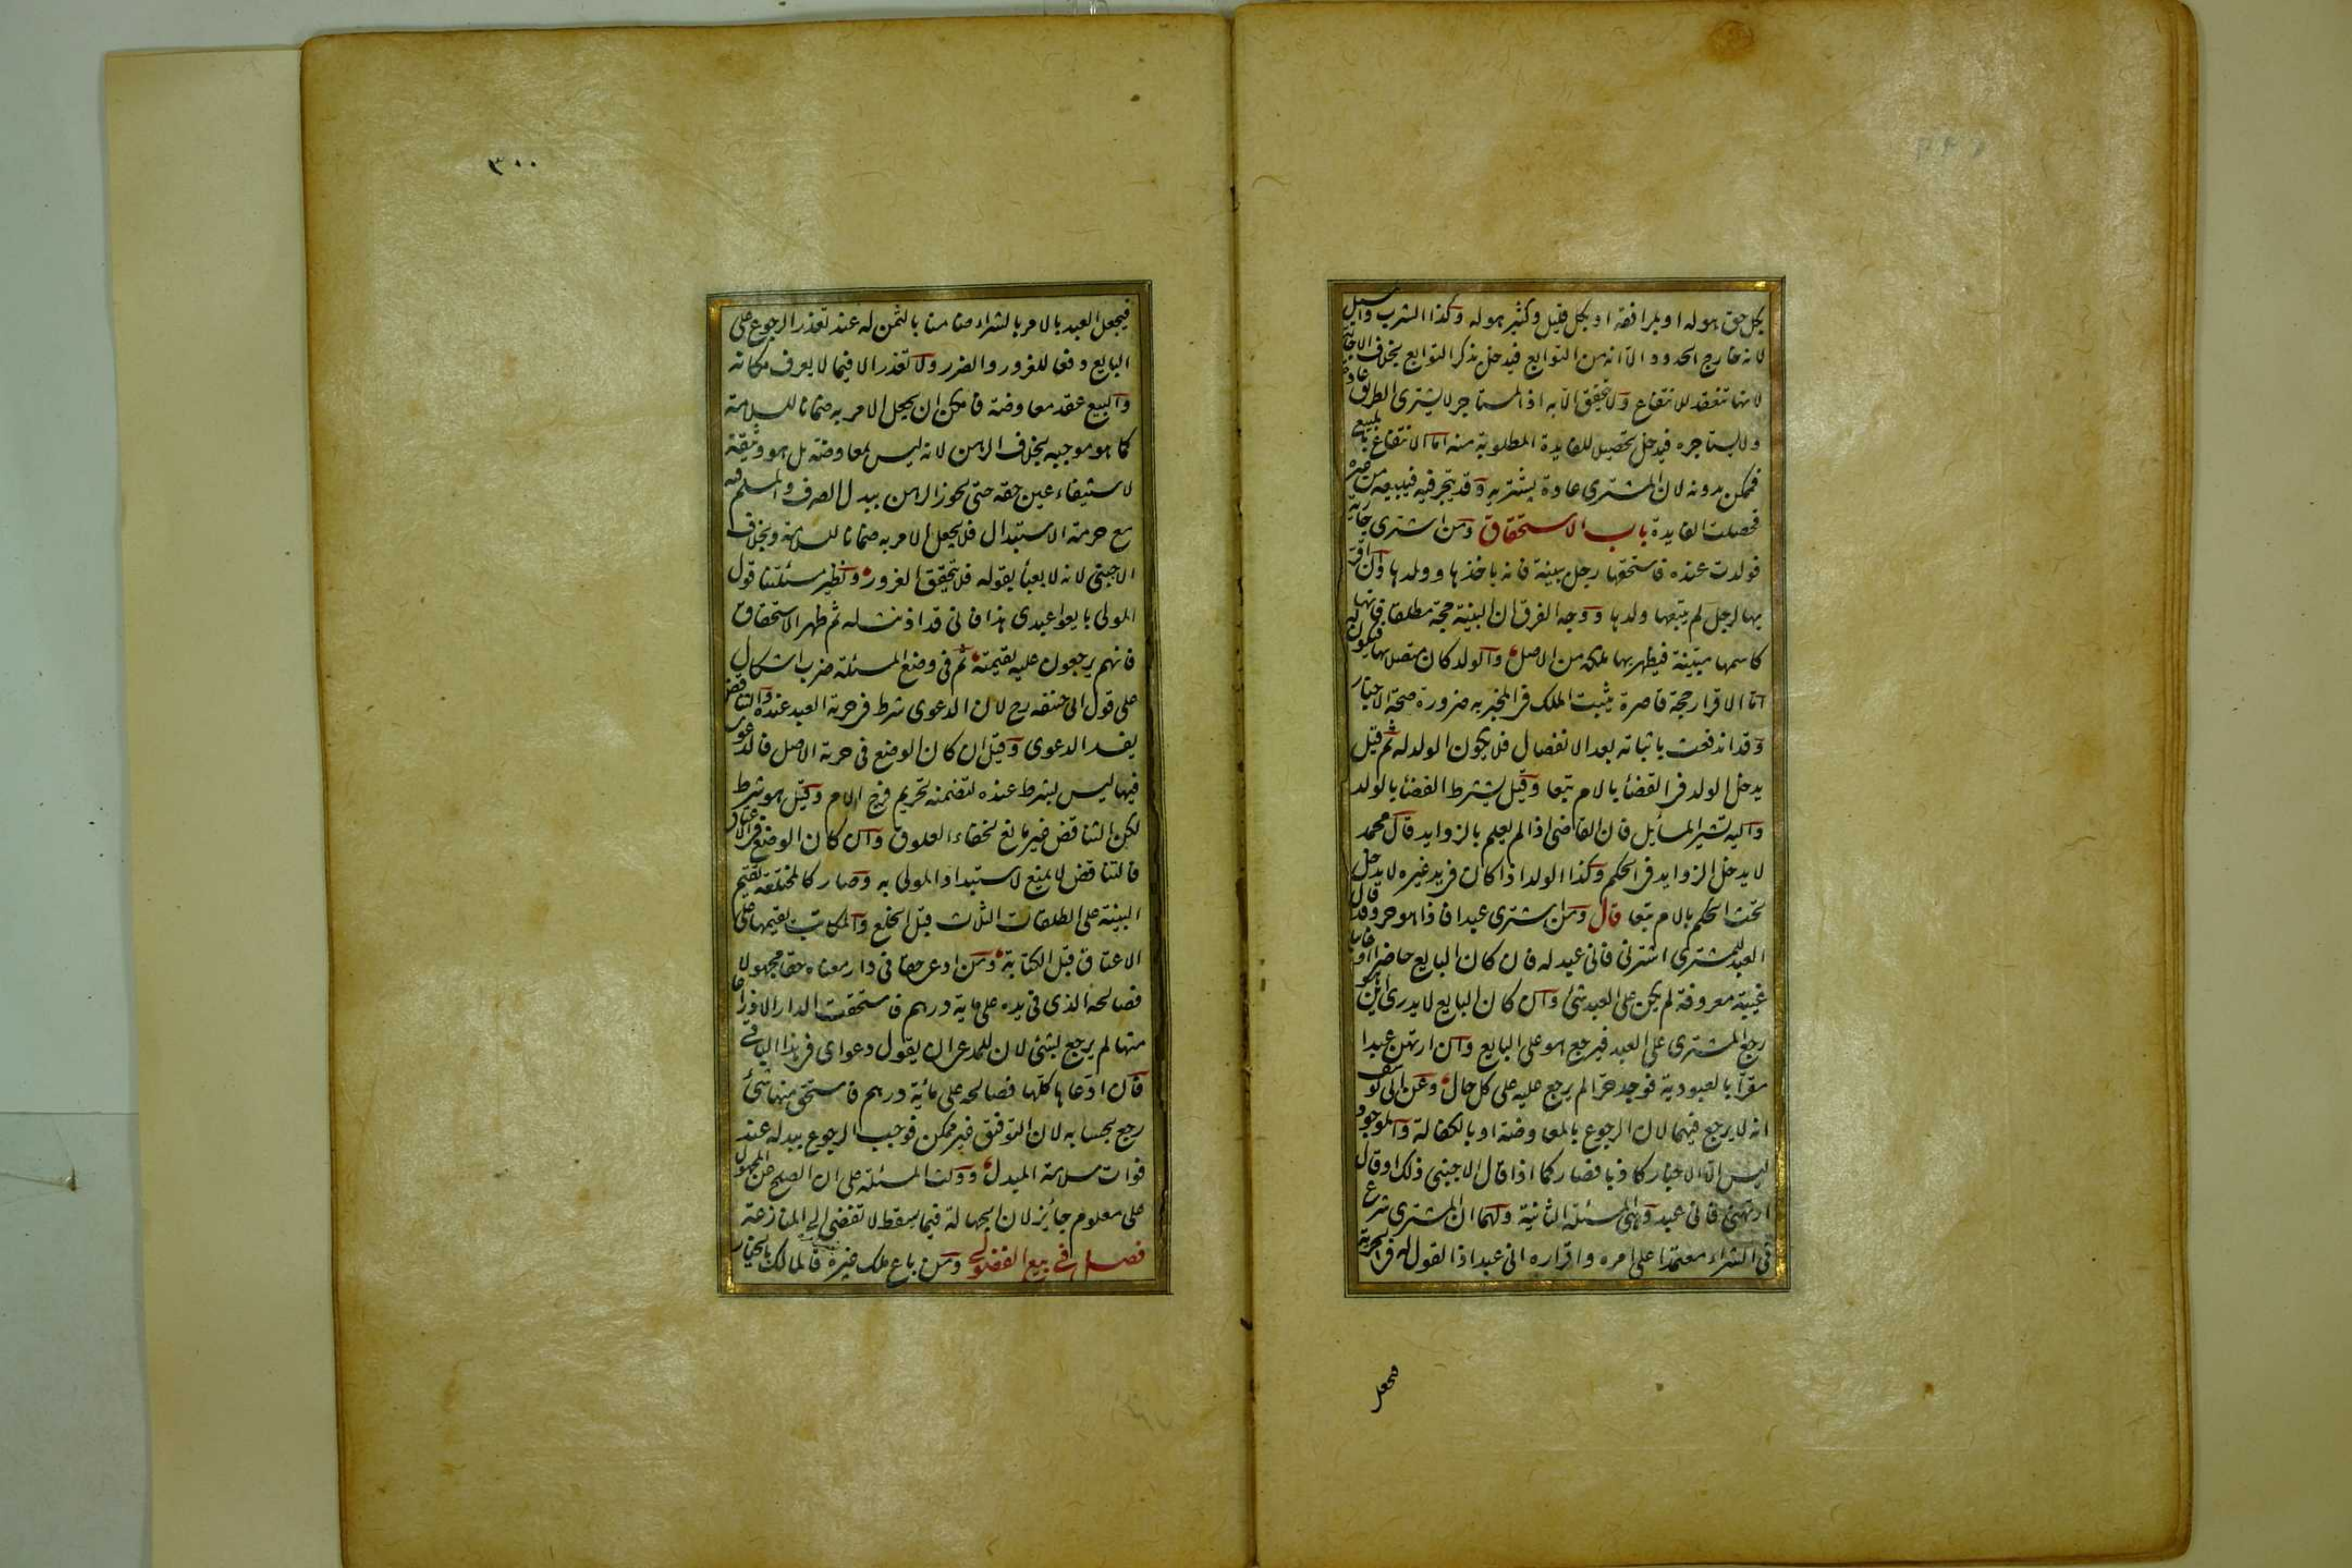 بكل حق هو له او بمرافقه او بكل قليل وكثير هو له وكذا الشرب والمسيل
لانه خارج الحدود الا انه من التوابع فيدخل بذكر التوابع بخلاف الاجارة
لانها تنعقد للانتفاع ولا تتحقق الا به اذ المستاجر لا يشترى الطريق عادة
ولا يستاجره فيدخل تحصيلا للفايدة المطلوبة منه اما الانتفاع بالمبيع
فممكن بدونه لان المشترى عادة يشتريه وقد يتجر فيه فيبيعه من غيره
فحصلت الفايدة باب الاستحقاق ومن اشترى جارية
فولدت عنده فاستحقها رجل ببينة فانه ياخذها وولدها وان اقر
بها لرجل لم يتبعها ولدها ووجه الفرق ان البينة حجة مطلقة فانها
كاسمها مبينة فيظهر بها ملكه من الاصل والولد كان متصلا بها فيكون له
اما الاقرار حجة قاصرة يثبت الملك فى المخبر به ضرورة صحة الاخبار
وقد اندفعت باثباته بعد الانفصال فلا يكون الولد له ثم قيل
يدخل الولد فى القضا بالام تبعا وقيل يشترط القضا بالولد
واليه تشير المسايل فان القاضى اذا لم يعلم بالزوايد قال محمد
لا يدخل الزوايد فى الحكم وكذا الولد اذا كان فى يد غيره لا يدخل
تحت الحكم بالام تبعا قال ومن اشترى عبدا فاذا هو حر وقد قال
العبد للمشترى اشترنى فانى عبد له فان كان البايع حاضرا او غايبا
غيبة معروفة لم يكن على العبد شئ وان كان البايع لا يدرى اين هو
رجع المشترى على العبد فيرجع هو على البايع وان ارتهن عبدا
مقرا بالعبودية فوجد حرا لم يرجع عليه على كل حال وعن ابى يوسف
انه لا يرجع فيهما لان الرجوع بالمعاوضة او بالكفالة والموجود
ليس الا الاخبار كاذبا فصار كما اذا قال الاجنبى ذلك او قال
ارتهنى فانى عبد وهى المسئلة الثانية ولهما ان المشترى شرع
فى الشراء معتمدا على امره واقراره انى عبد اذ القول له فى الحرية
فيجعل
٣٠٠
فيجعل العبد بالامر بالشراء ضامنا بالثمن له عند تعذر الرجوع على
البايع دفعا للغرور والضرر ولا تعذر الا فيما لا يعرف مكانه
والبيع عقد معاوضة فامكن ان يجعل الامر به ضمانا للسلامة
كما هو موجبه بخلاف الرهن لانه ليس بمعاوضة بل هو وثيقة
لاستيفاء عين حقه حتى يجوز الرهن ببدل الصرف والمسلم فيه
مع حرمة الاستبدال فلا يجعل الامر به ضمانا للسلامة وبخلاف
الاجنبى لانه لا يعبأ بقوله فلا يتحقق الغرور ونظير مسئلتنا قول
المولى بايعوا عبدى هذا فانى قد اذنت له ثم ظهر الاستحقاق
فانهم يرجعون عليه بقيمته ثم فى وضع المسئلة ضرب اشكال
على قول ابى حنيفه رح لان الدعوى شرط فى حرية العبد عنده والتناقض
يفسد الدعوى وقيل ان كان الوضع فى حرية الاصل فالدعوى
فيها ليس بشرط عنده لتضمنه تحريم فرج الام وقيل هو شرط
لكن التناقض غير مانع لخفاء العلوق وان كان الوضع فى الاعتاق
فالتناقض لا يمنع لاستبداد المولى به وصار كالمختلعة تقيم
البينة على الطلقات الثلاث قبل الخلع والمكاتب يقيمها على
الاعتاق قبل الكتابة ومن ادعى حقا فى دار معناه حقا مجهولا
فصالحه الذى فى يده على ماية درهم فاستحقت الدار الا ذراعا
منها لم يرجع بشئ لان للمدعى ان يقول دعواى فى هذا الباقى
قال ادعاها كلها فصالحه على مائة درهم فاستحق منها شئ
رجع بحسابه لان التوفيق غير ممكن فوجب الرجوع ببدله عند
فوات سلامة المبدل ودلت المسئلة على ان الصلح عن المجهول
على معلوم جائز لان الجهالة فيما يسقط لا تفضى الى المنازعة
فصل فى بيع الفضولى ومن باع ملك غيره فالمالك بالخيار